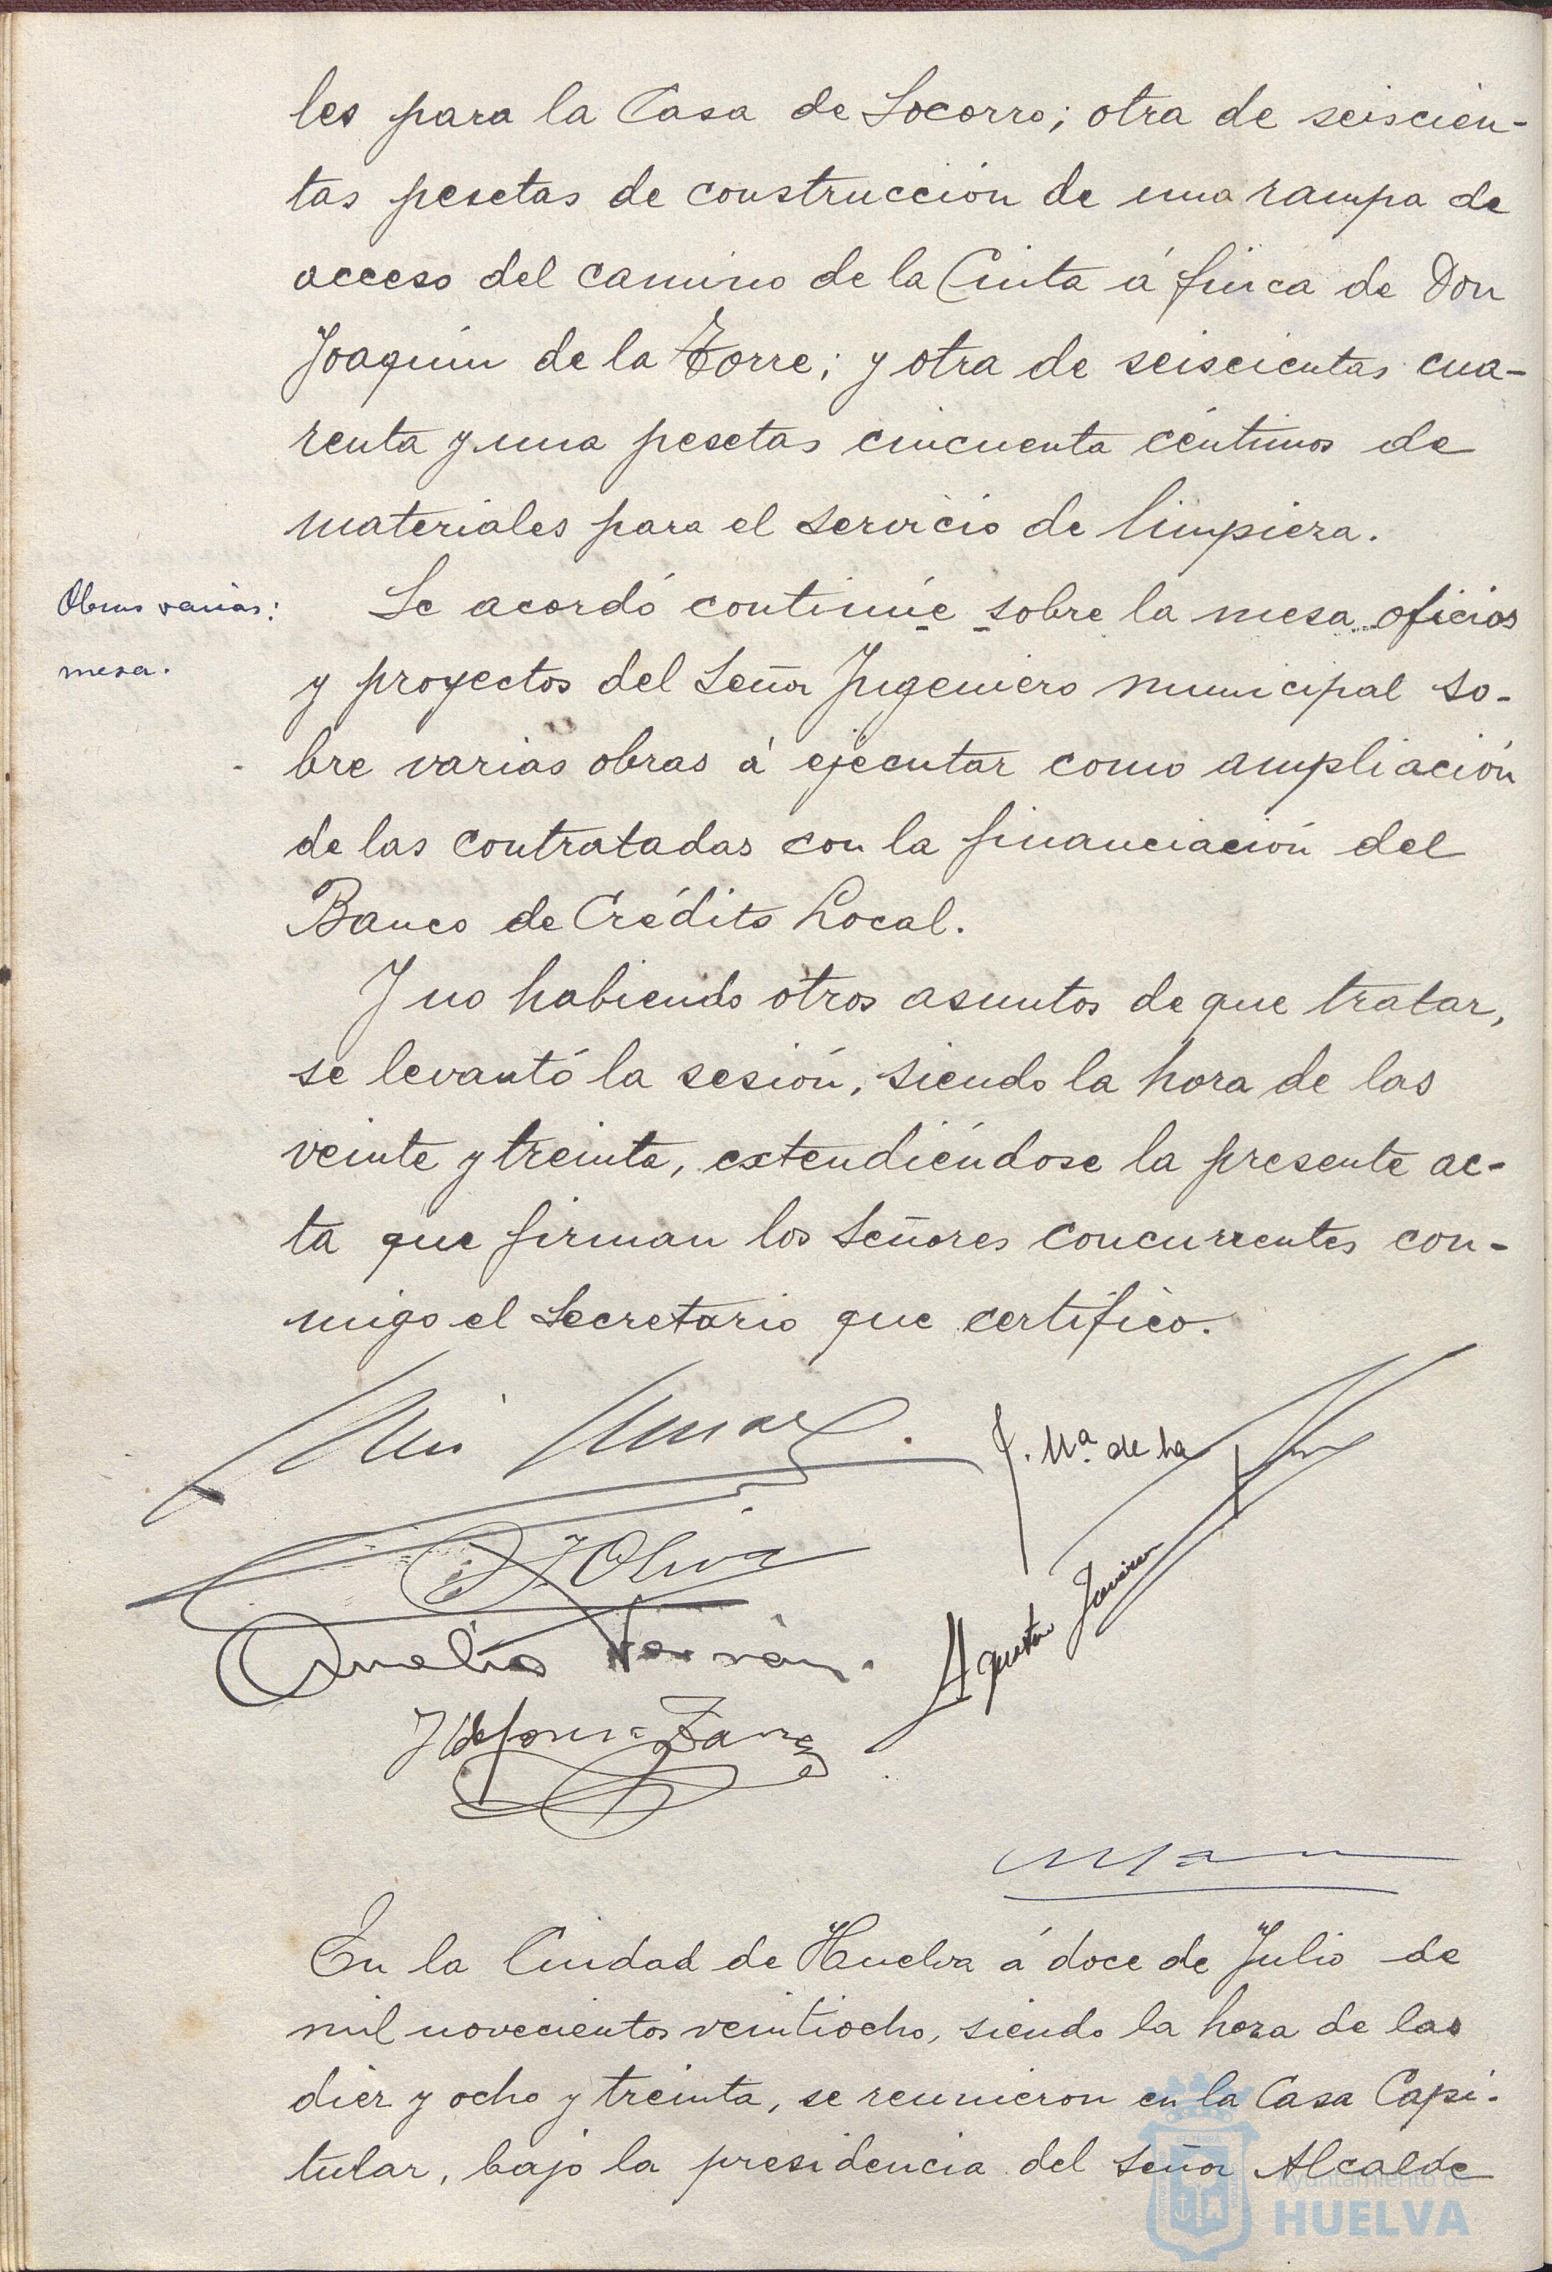 les para la Casa de Socorro; otra de seiscien-
tas pesetas de construcción de una rampa de
acceso del camino de la Cinta á finca de Don
Joaquín de la Torre; y otra de seiscientas cua-
renta y una pesetas cincuenta céntimos de
materiales para el servicio de limpieza.
Obras varias:
mesa.
Se acordó continúe sobre la mesa oficios
y proyectos del Señor Ingeniero municipal so-
bre varias obras á ejecutar como ampliación
de las contratadas con la financiación del
Banco de Crédito Local.
Y no habiendo otros asuntos de que tratar,
se levantó la sesión, siendo la hora de las
veinte y treinta, extendiéndose la presente ac-
ta que firman los Señores concurrentes con-
migo el Secretario que certifico.
J. Mª. de la
Oliva
Agustin
En la Ciudad de Huelva á doce de Julio de
mil novecientos veintiocho, siendo la hora de las
diez y ocho y treinta, se reunieron en la Casa Capi-
tular, bajo la presidencia del Señor Alcalde
Ayuntamiento de
HUELVA